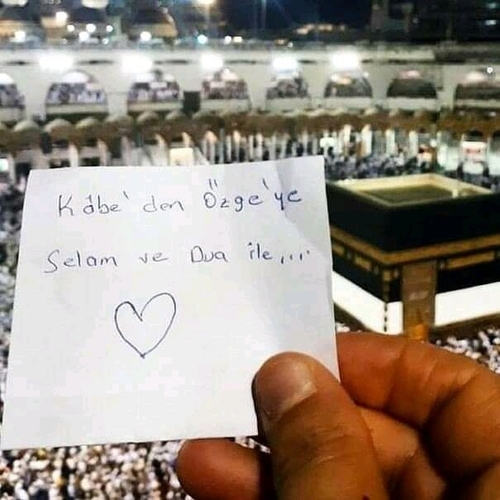 Kâbe'den Özge'ye
Selam ve Dua ile....